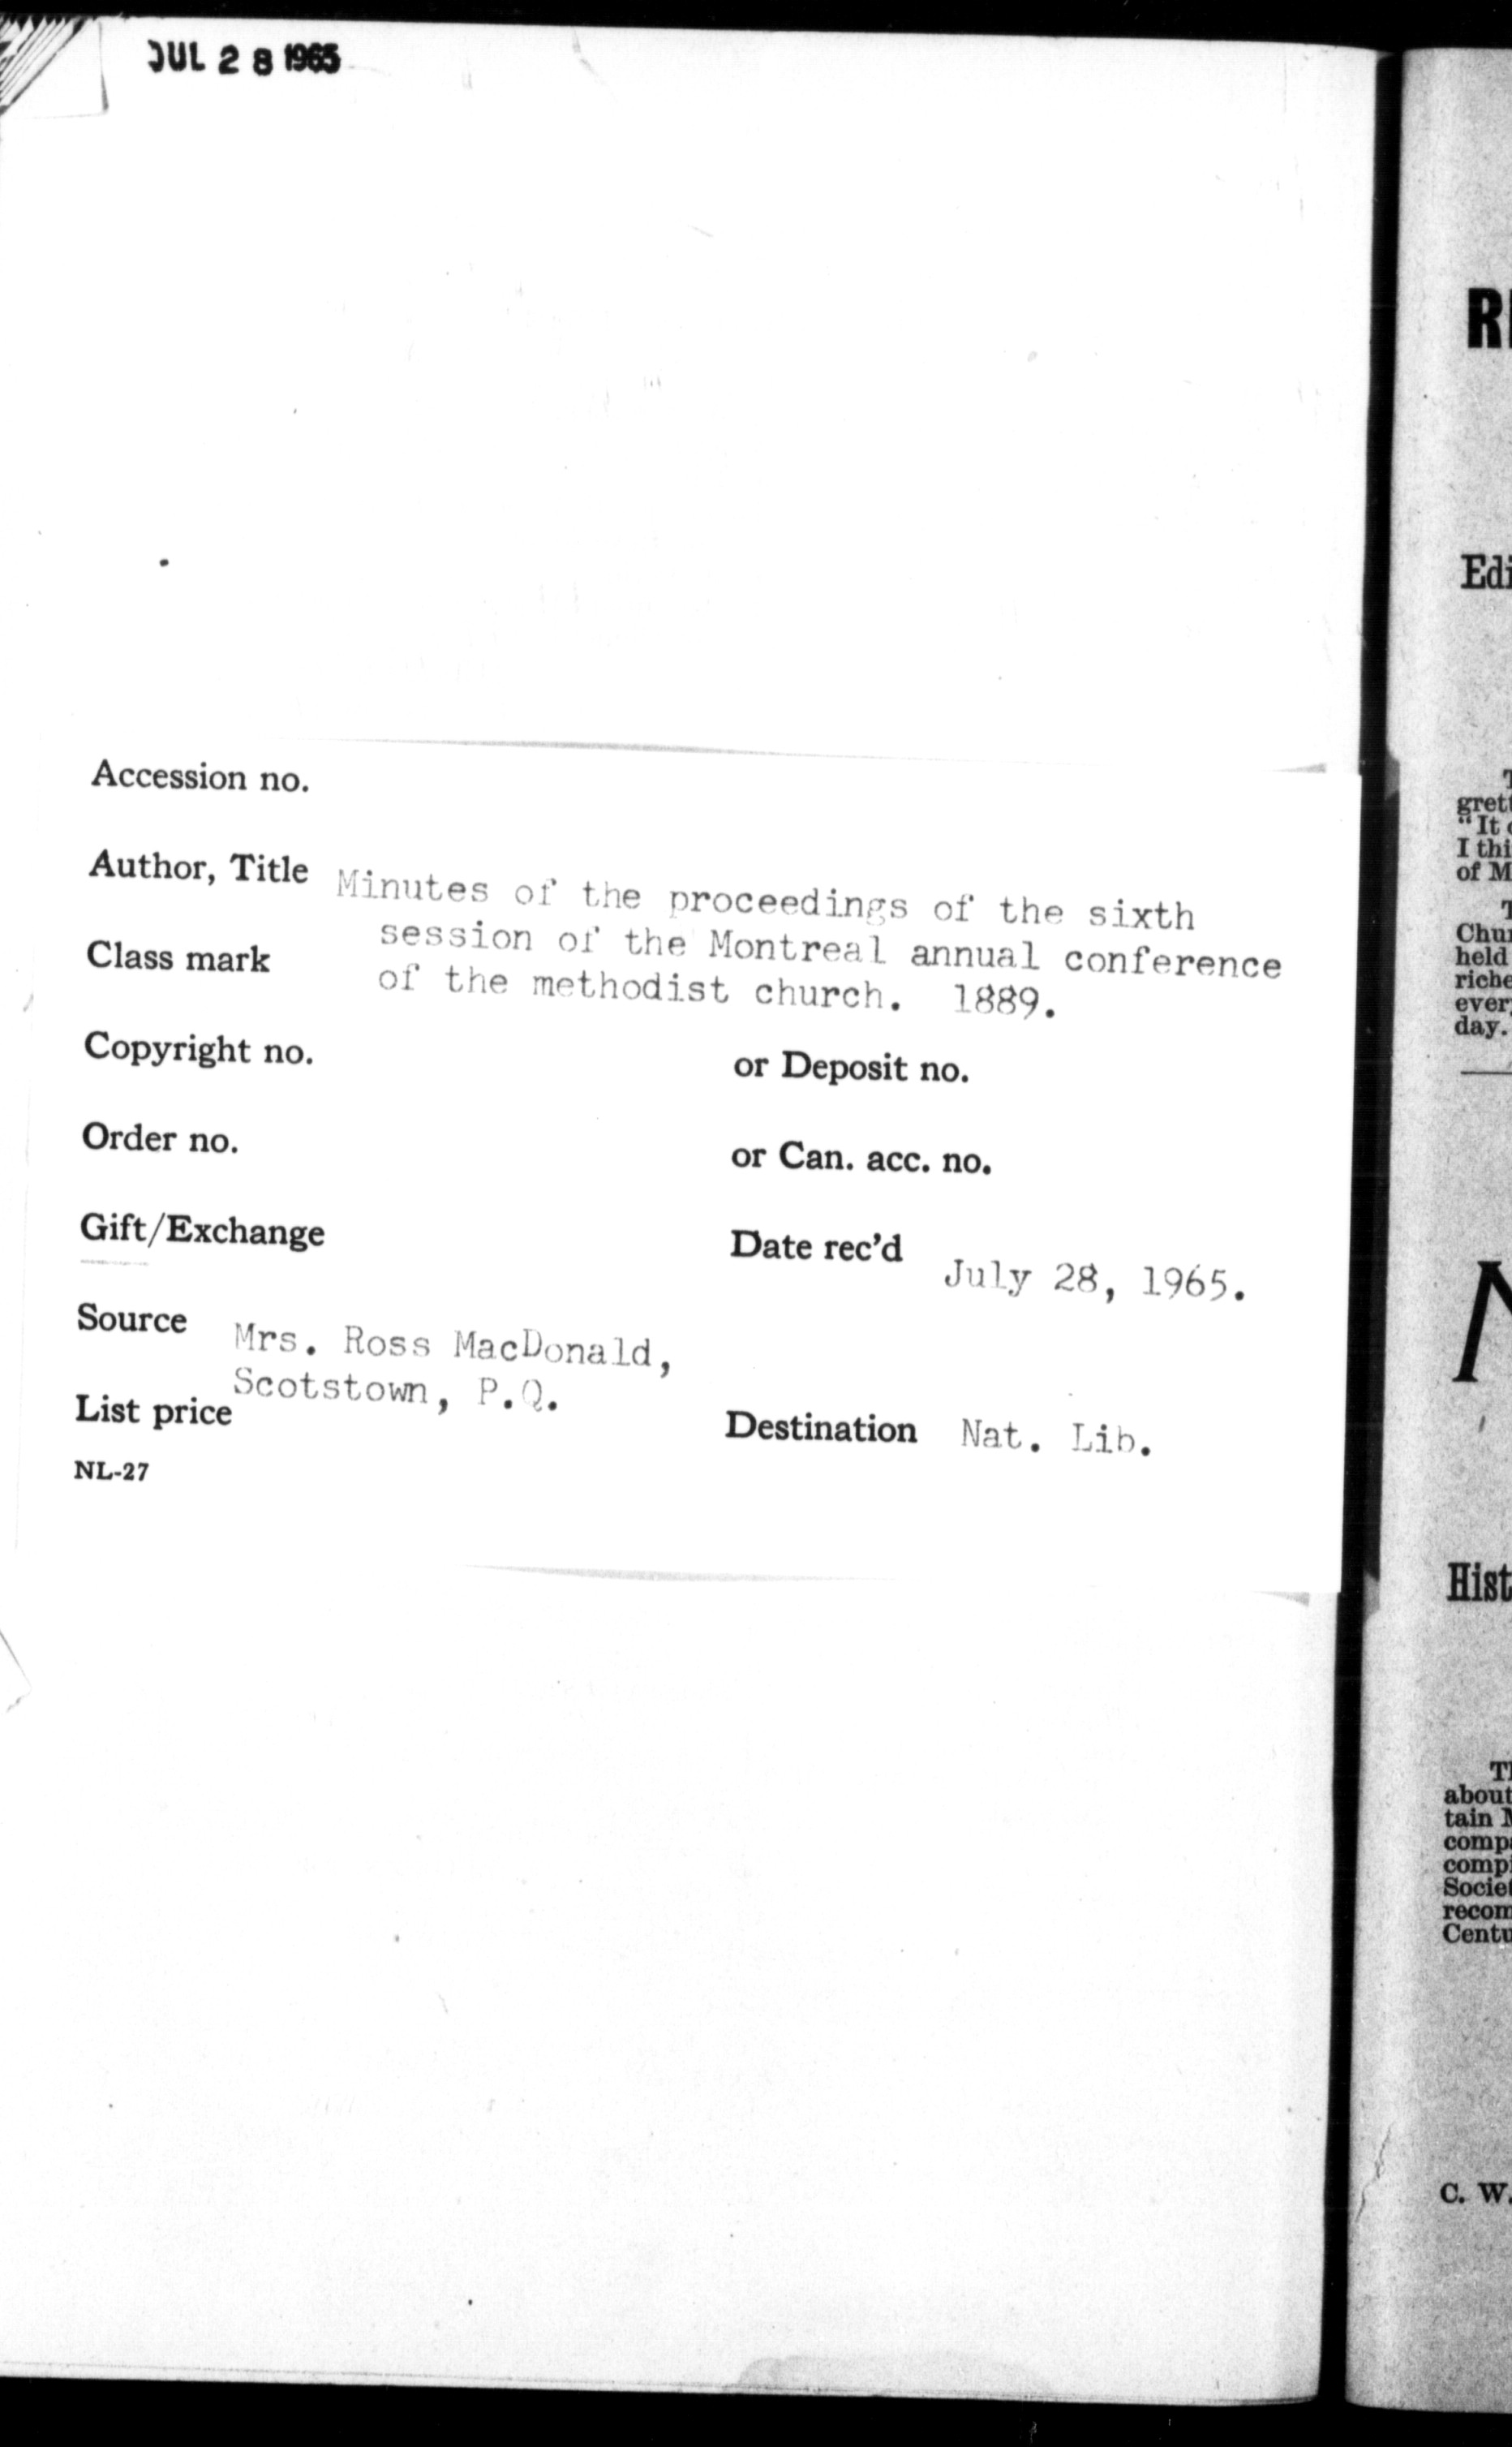 JUL 28 1965
Accession no.
Author, Title Minutes of the proceedings of the sixth
session of the Montreal annual conference
Class mark
of the methodist church. 1889.
Copyright no. or Deposit no.
Order no. or Can. acc. no.
Gift/Exchange Date rec'd July 28, 1965.
Source Mrs. Ross MacDonald,
Scotstown, P.Q.
List price Destination Nat. Lib.
NL-27
Edi
grett
"It
I thi
of M
Chur
held
riche
every
day.
Hist
Th
about
tain M
compa
comp
Societ
recom
Centu
C. W.